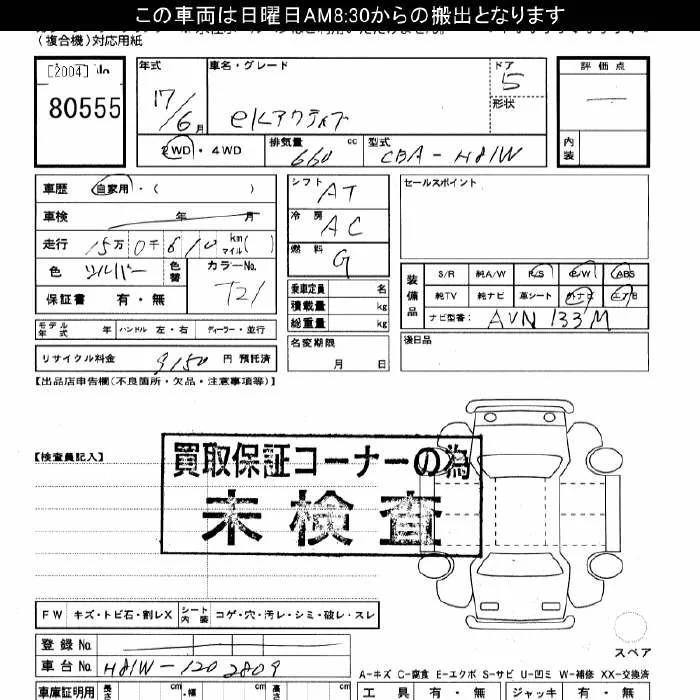 この車両は日曜日AM8:30からの搬出となります
(複合機)対応用紙
[2004] No
80555
年式
17/6月
車名・グレード
eKアクティブ
ドア
5
形状
評価点
内装
2WD・4WD
排気量 660 cc
型式 CBA-H81W
車歴 自家用・( )
車検 年 月
走行 15万0千610 km マイル( )
色 シルバー 色替 カラーNo. T21
保証書 有・無
シフト AT
冷房 AC
燃料 G
乗車定員 名
積載量 kg
総重量 kg
名変期限
月 日
セールスポイント
装備品
S/R 純A/W P/S P/W ABS
純TV 純ナビ 革シート 外ナビ エアB
ナビ型番: AVN 133M
後日品
モデル年式 年 ハンドル 左・右 ディーラー・並行
リサイクル料金 9150 円 預託済
【出品店申告欄(不良箇所・欠品・注意事項等)】
【検査員記入】
買取保証コーナーの為
未検査
FW キズ・トビ石・割レX シート内装 コゲ・穴・汚レ・シミ・破レ・スレ
登録No.
車台No. H81W-1202809
スペア
A-キズ C-腐食 E-エクボ S-サビ U-凹ミ W-補修 XX-交換済
車庫証明用 長さ cm ・幅 cm 高さ cm
工具 有・無 ジャッキ 有・無